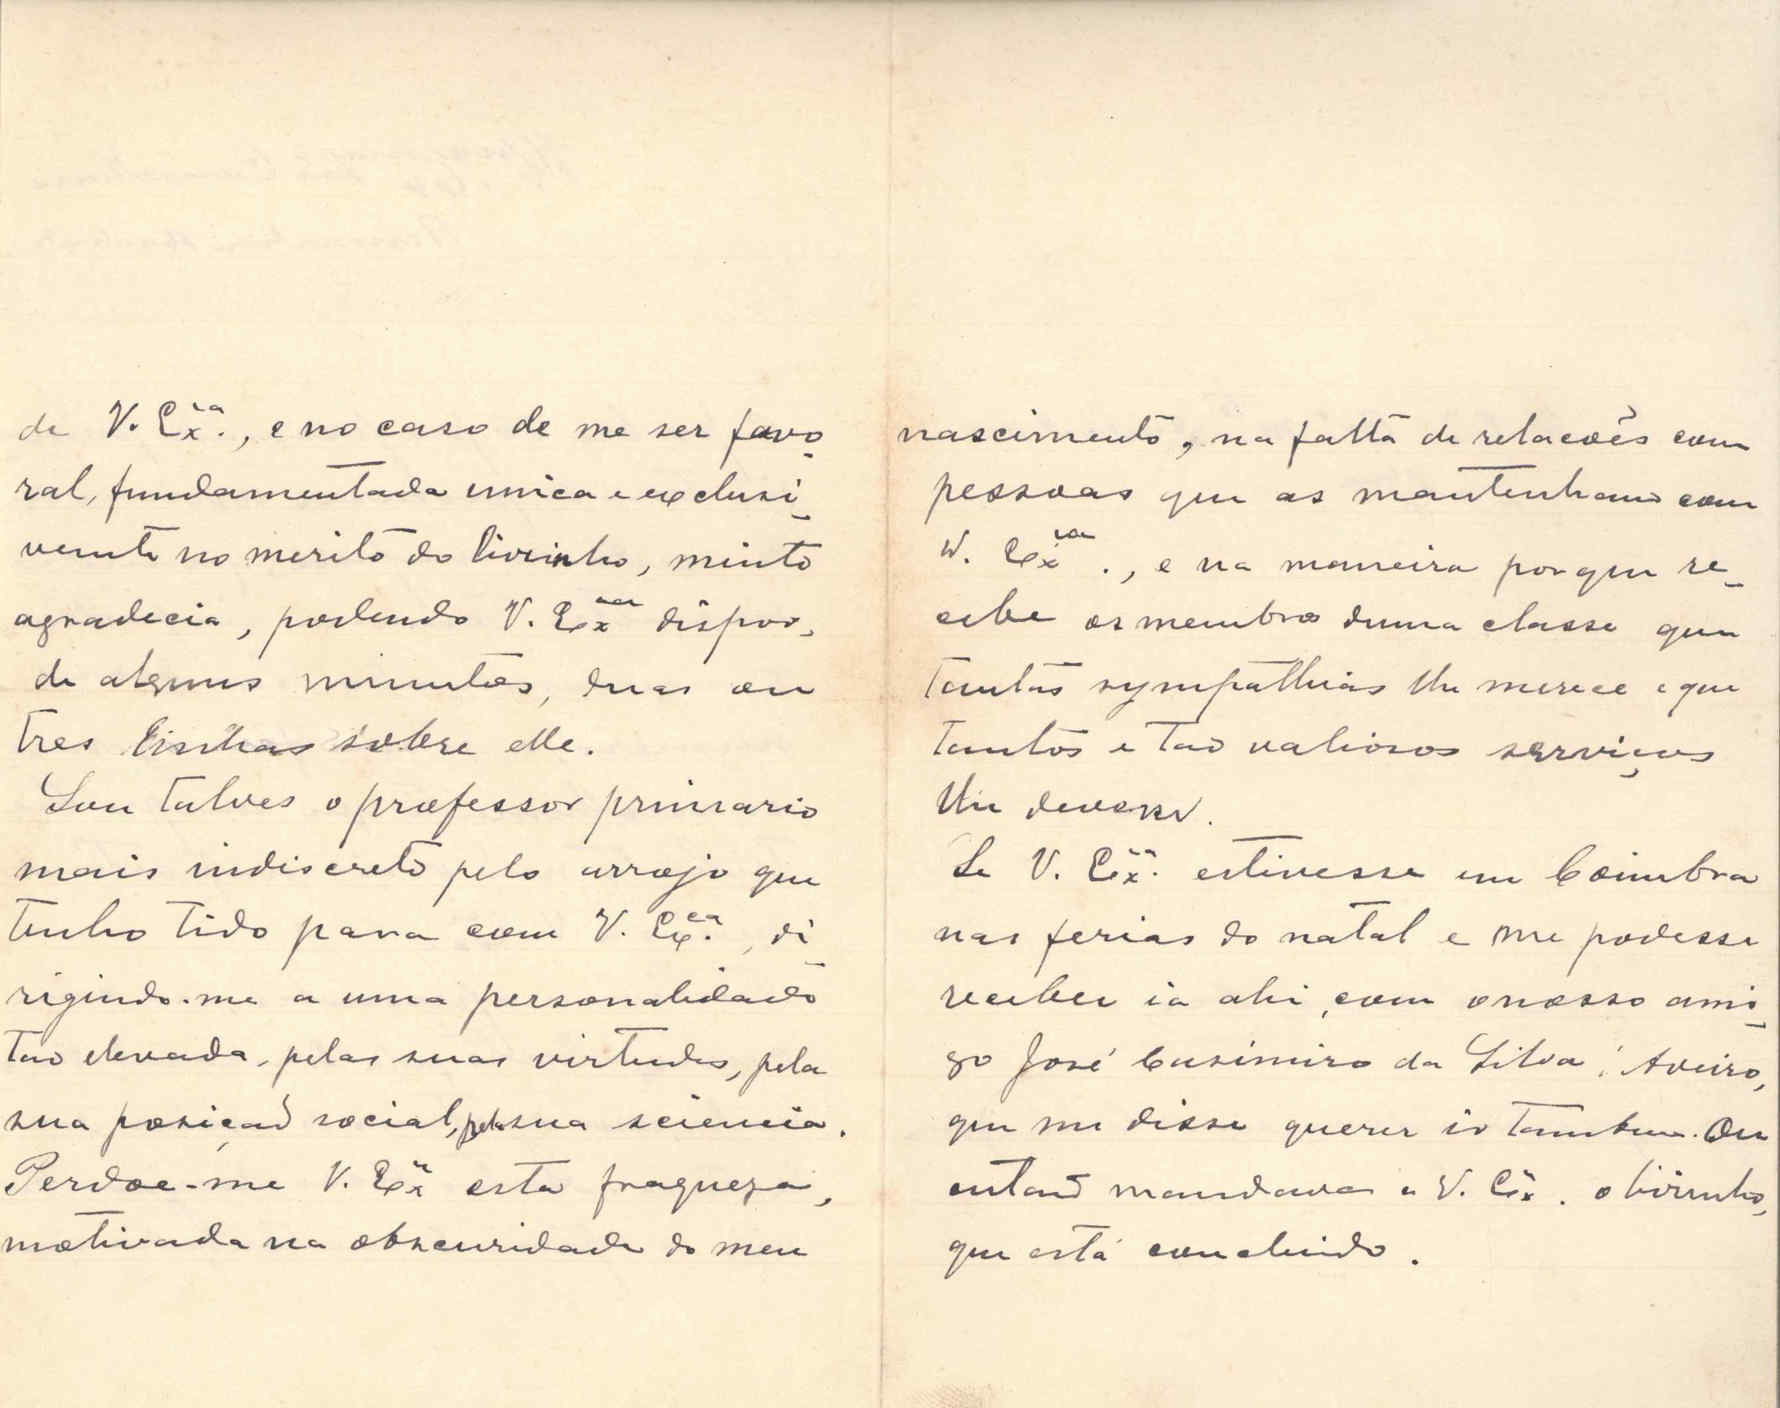 de V. Ex.ca, e no caso de me ser favo-
ral, fundamentada unica e exclusi-
vemente no merito do livrinho, muito
agradecia, podendo V. Ex.ca dispor,
de alguns minutos, duas ou
tres linhas sobre elle.
Sou talves o professor primario
mais indiscreto pelo arrojo que
tenho tido para com V. Ex.ca, di-
rigindo-me a uma personalidade
tao elevada, pelas suas virtudes, pela
sua posiçao social, pela sua sciencia.
Perdoe-me V. Ex.ca esta fraqueza,
motivada na obscuridade do meu
nascimento, na falta de relacoẽs com
pessoas que as mantenham com
V. Ex.ca, e na maneira porque re-
cebe os membros duma classe que
tantas sympathias lhe merece e que
tantos e tao valiosos serviços
lhe deve.
Se V. Ex.ca estivesse em Coimbra
nas ferias do natal e me podesse
receber ia ahi, com o nosso ami-
go José Casimiro da Silva, Aveiro,
que me disse querer ir tambem. Ou
entao mandava a V. Ex.ca o livrinho,
que está concluido.